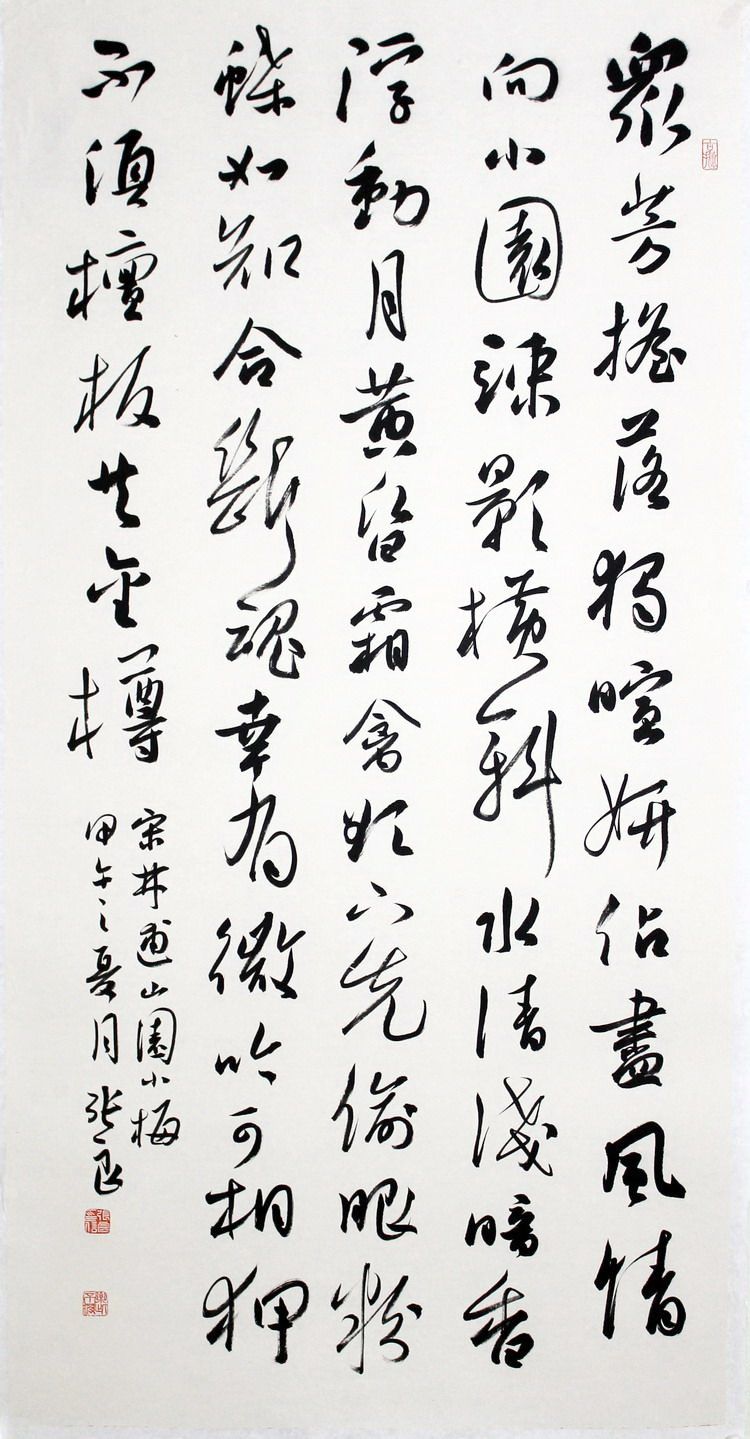 衆芳搖落獨暄妍佔盡風情
向小園疎影横斜水清淺暗香
浮動月黄昏霜禽欲下先偷眼粉
蝶如知合斷魂幸有微吟可相狎
不須檀板共金樽
宋林逋山園小梅
甲午之夏月張良